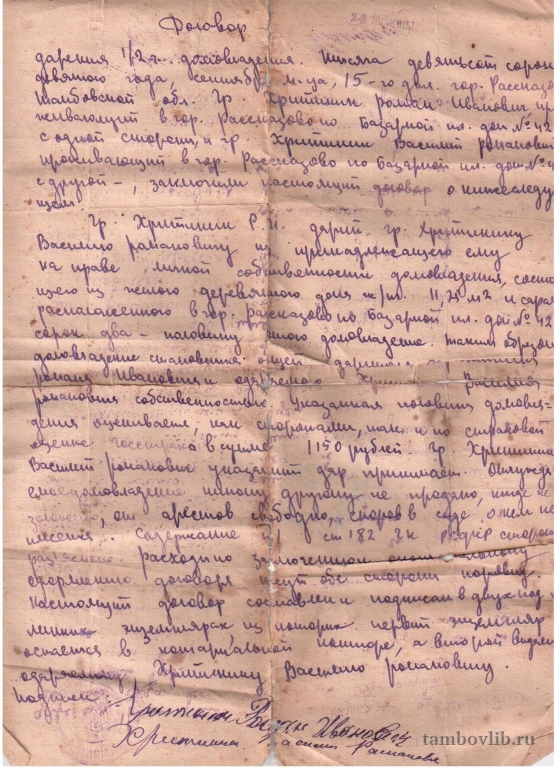 Договор
дарения 1/2 г. домовладения. Тысяча девятьсот сорок
девятого года, сентября м-ца, 15-го дня. гор. Рассказо
Тамбовской обл. Гр. Хритинин Роман Иванович пр
живающий в гор. Рассказово по Базарной пл. дом № 42
с одной стороны, и гр. Хритинин Василий Романович
проживающий в гор. Рассказово по Базарной пл. дом № 4
с другой -, заключили настоящий договор о нижеследу
щем
Гр. Хритинин Р. И. дарит гр. Хритинину
Василию Романовичу из принадлежащего ему
на праве личной собственности домовладения, состоя
щего из жилого деревянного дома ж/пл. 11,25 м2 и сарая
расположенного в гор. Рассказово по Базарной пл. дом № 42
сорок два - половину домовладение таким образом
домовладение становится общей
Романа Ивановича и одаряемого Василия
Романовича собственностью. Указанная половина домовла-
дения оценивается, как сторонами, так и по страховой
оценке Госстраха в сумме 1150 рублей. Гр Хритинин
Василий Романович указанный дар принимает. Отчужда
емое домовладение никому другому не продано, нигде не
заложено, от арестов свободно, споров в суде о нем не
имеется. Содержание ст 182 ГК РСФСР сторонам
разъяснено. Расходы по заключению
оформлению договора несут обе стороны поровну
Настоящий договор составлен и подписан в двух под
линных экземплярах из которых первый экземпляр
остается в нотариальной конторе, а второй выдается
одаряемому Хритинину Василию Романовичу.
Подписи
Роман Иванович
Василий Романович
tambovlib.ru